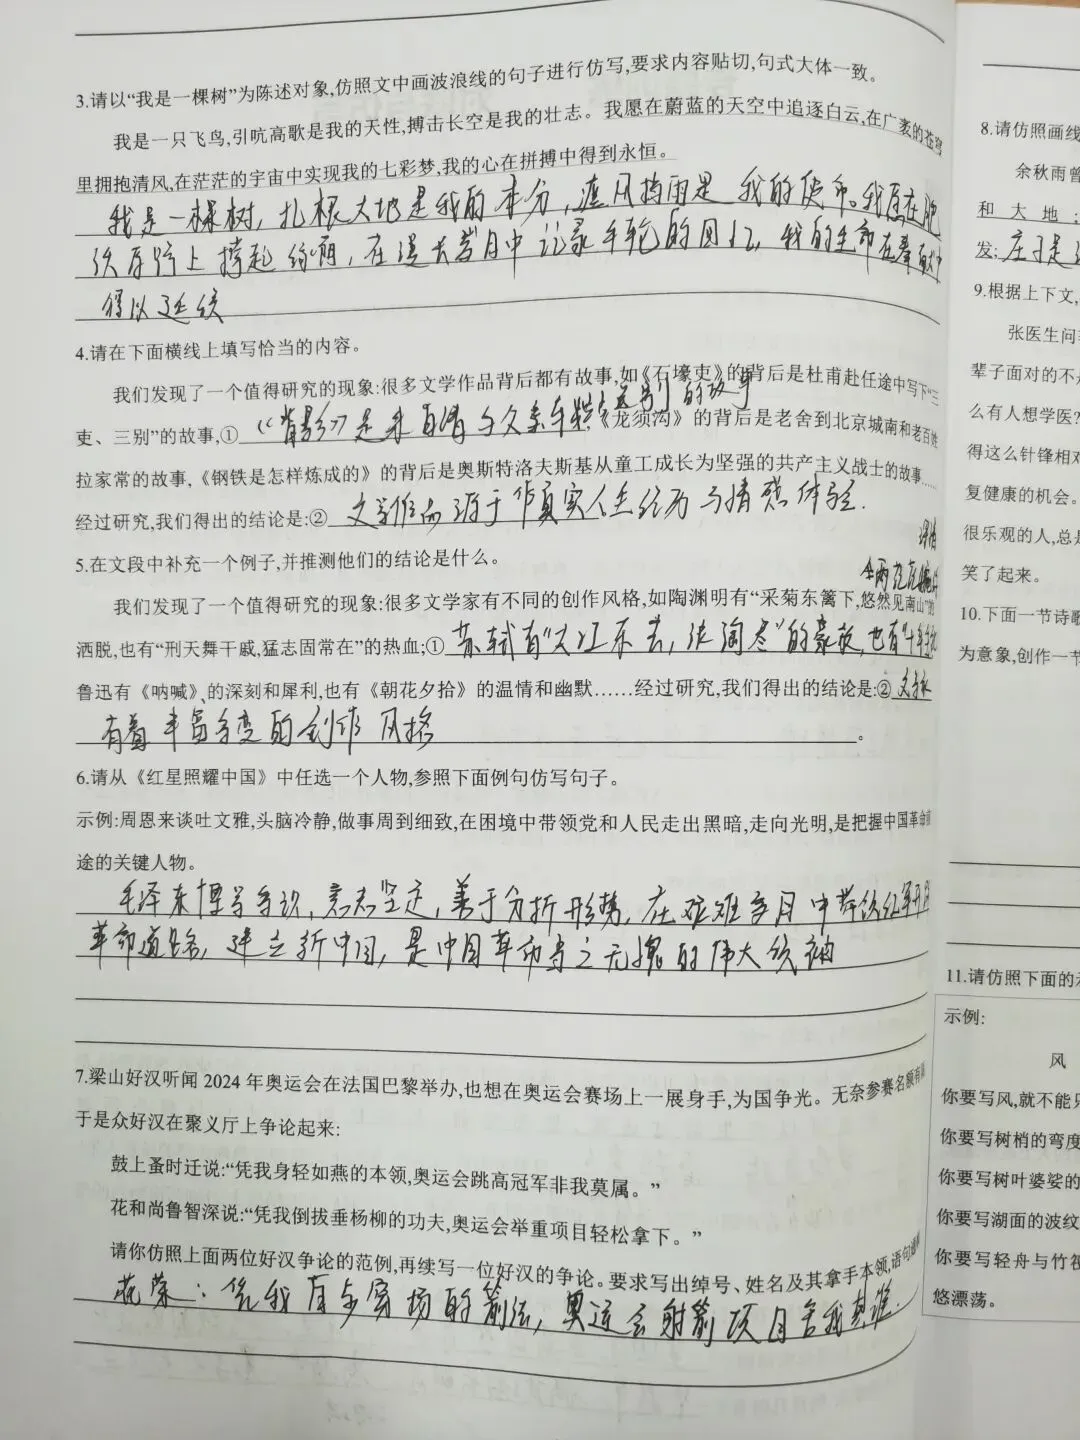 3.请以“我是一棵树”为陈述对象,仿照文中画波浪线的句子进行仿写,要求内容贴切,句式大体一致。
我是一只飞鸟,引吭高歌是我的天性,搏击长空是我的壮志。我愿在蔚蓝的天空中追逐白云,在广袤的苍穹
里拥抱清风,在茫茫的宇宙中实现我的七彩梦,我的心在拼搏中得到永恒。
我是一棵树,扎根大地是我的本分,遮风挡雨是我的使命。我愿在肥
沃原野上撑起绿荫,在漫长岁月中记录年轮的回忆,我的生命在奉献中
得以延续
4.请在下面横线上填写恰当的内容。
我们发现了一个值得研究的现象:很多文学作品背后都有故事,如《石壕吏》的背后是杜甫赴任途中写下“三
吏、三别”的故事,①《背影》是朱自清与父亲车站送别的故事《龙须沟》的背后是老舍到北京城南和老百姓
拉家常的故事,《钢铁是怎样炼成的》的背后是奥斯特洛夫斯基从童工成长为坚强的共产主义战士的故事……
经过研究,我们得出的结论是:②文学作品源于作真实人生经历与情感体验.
5.在文段中补充一个例子,并推测他们的结论是什么。
我们发现了一个值得研究的现象:很多文学家有不同的创作风格,如陶渊明有“采菊东篱下,悠然见南山”的
洒脱,也有“刑天舞干戚,猛志固常在”的热血;①苏轼有“大江东去,浪淘尽”的豪放,也有“十年生死
两茫茫
鲁迅有《呐喊》、的深刻和犀利,也有《朝花夕拾》的温情和幽默……经过研究,我们得出的结论是:②文学家
有着丰富多变的创作风格。
6.请从《红星照耀中国》中任选一个人物,参照下面例句仿写句子。
示例:周恩来谈吐文雅,头脑冷静,做事周到细致,在困境中带领党和人民走出黑暗,走向光明,是把握中国革命前
途的关键人物。
毛泽东博学多识,意志坚定,善于分析形势,在艰难岁月中带领红军开辟
革命道路,建立新中国,是中国革命当之无愧的伟大领袖
7.梁山好汉听闻2024年奥运会在法国巴黎举办,也想在奥运会赛场上一展身手,为国争光。无奈参赛名额有限
于是众好汉在聚义厅上争论起来:
鼓上蚤时迁说:“凭我身轻如燕的本领,奥运会跳高冠军非我莫属。”
花和尚鲁智深说:“凭我倒拔垂杨柳的功夫,奥运会举重项目轻松拿下。”
请你仿照上面两位好汉争论的范例,再续写一位好汉的争论。要求写出绰号、姓名及其拿手本领,语句通顺
花荣:凭我百步穿杨的箭法,奥运会射箭项目舍我其谁.
8.请仿照画线
余秋雨曾
和大地;
发;庄子是
9.根据上下文,
张医生问
辈子面对的不
么有人想学医?
得这么针锋相对
复健康的机会。
很乐观的人,总是
笑了起来。
10.下面一节诗歌
为意象,创作一节
11.请仿照下面的
示例:
风
你要写风,就不能只
你要写树梢的弯度
你要写树叶婆娑的
你要写湖面的波纹
你要写轻舟与竹筏
悠漂荡。